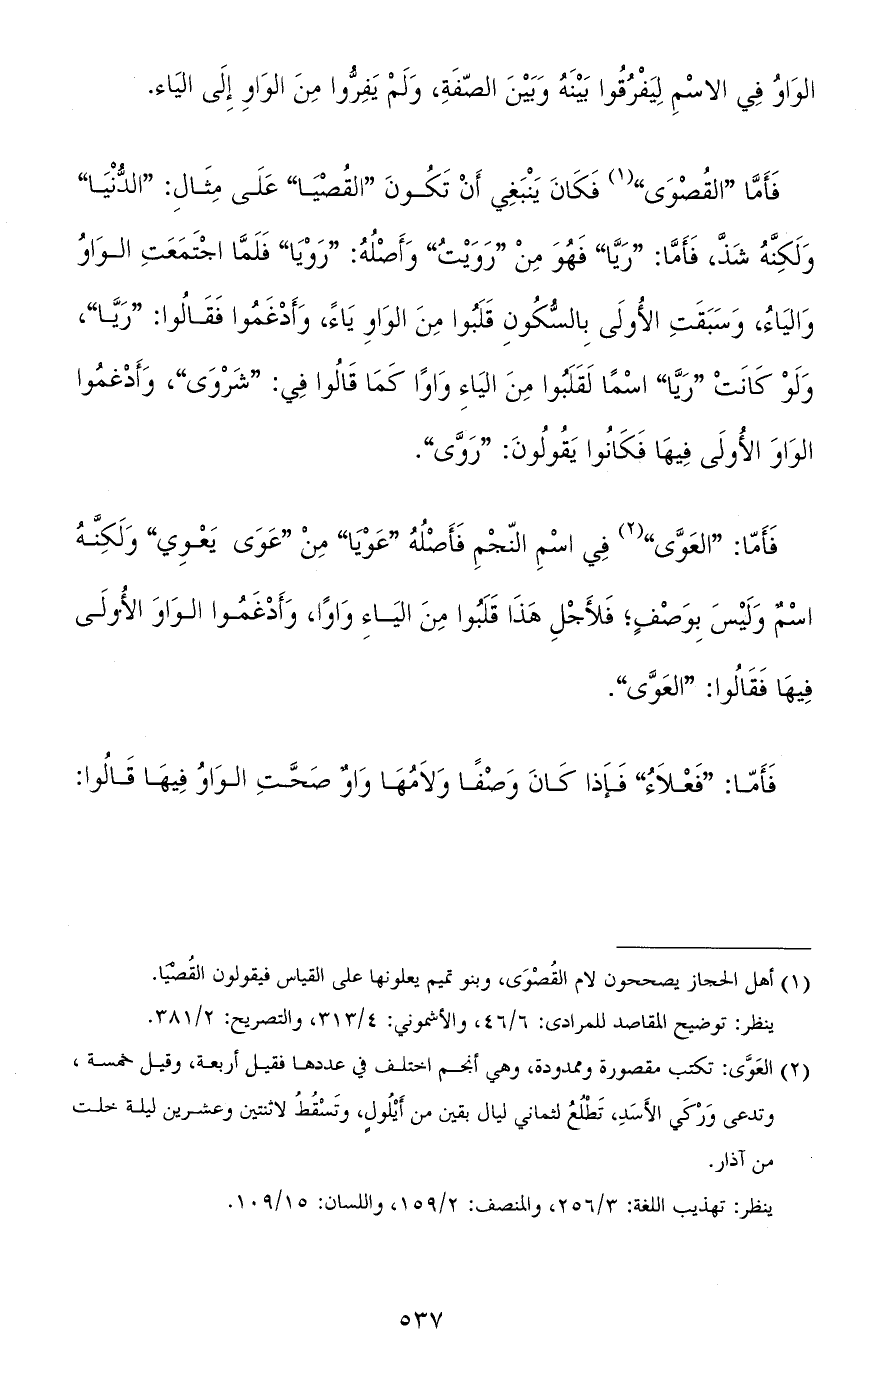 الوَاوُ فِي الاسْمِ لِيَفْرُقُوا بَيْنَهُ وَبَيْنَ الصِّفَةِ، وَلَمْ يَفِرُّوا مِنَ الوَاوِ إِلَى اليَاء.
فَأَمَّا ”القُصْوَى“(١) فَكَانَ يَنْبَغِي أَنْ تَكُونَ ”القُصْيَا“ عَلَى مِثَالِ: ”الدُّنْيَا“
وَلَكِنَّهُ شَذَّ، فَأَمَّا: ”رَيَّا“ فَهُوَ مِنْ ”رَوَيْتُ“ وَأَصْلُهُ: ”رَوْيَا“ فَلَمَّا اجْتَمَعَتِ الوَاوُ
وَاليَاءُ، وَسَبَقَتِ الأُولَى بِالسُّكُونِ قَلَبُوا مِنَ الوَاوِ يَاءً، وَأَدْغَمُوا فَقَالُوا: ”رَيَّا“،
وَلَوْ كَانَتْ ”رَيَّا“ اسْمًا لَقَلَبُوا مِنَ اليَاءِ وَاوًا كَمَا قَالُوا فِي: ”شَرْوَى“، وَأَدْغمُوا
الوَاوَ الأُولَى فِيهَا فَكَانُوا يَقُولُونَ: ”رَوَّى“.
فَأَمّا: ”العَوَّى“(٢) فِي اسْمِ النَّجْمِ فَأَصْلُهُ ”عَوْيَا“ مِنْ ”عَوَى يَعْوِي“ وَلَكِنَّهُ
اسْمٌ وَلَيْسَ بِوَصْفٍ؛ فَلأَجْلِ هَذَا قَلَبُوا مِنَ اليَاءِ وَاوًا، وَأَدْغَمُوا الوَاوَ الأُولَى
فِيهَا فَقَالُوا: ”العَوَّى“.
فَأَمّا: ”فَعْلاَءُ“ فَإِذا كَانَ وَصْفًا وَلاَمُهَا وَاوٌ صَحَّتِ الوَاوُ فِيهَا قَالُوا:
(١) أهل الحجاز يصححون لام القُصْوَى، وبنو تميم يعلونها على القياس فيقولون القُصْيَا.
ينظر: توضيح المقاصد للمرادى: ٤٦/٦، والأشموني: ٣١٣/٤، والتصريح: ٣٨١/٢.
(٢) العَوَّى: تكتب مقصورة وممدودة، وهي أنجم اختلف في عددها فقيل أربعة، وقيل خمسة ،
وتدعى وَرْكَي الأَسَدِ، تَطْلُعُ لثماني ليال بقين من أَيْلُولٍ، وتَسْقُطُ لاثنتين وعشرين ليلة خلت
من آذار.
ينظر: تهذيب اللغة: ٢٥٦/٣، والمنصف: ١٥٩/٢، واللسان: ١٠٩/١٥.
٥٣٧